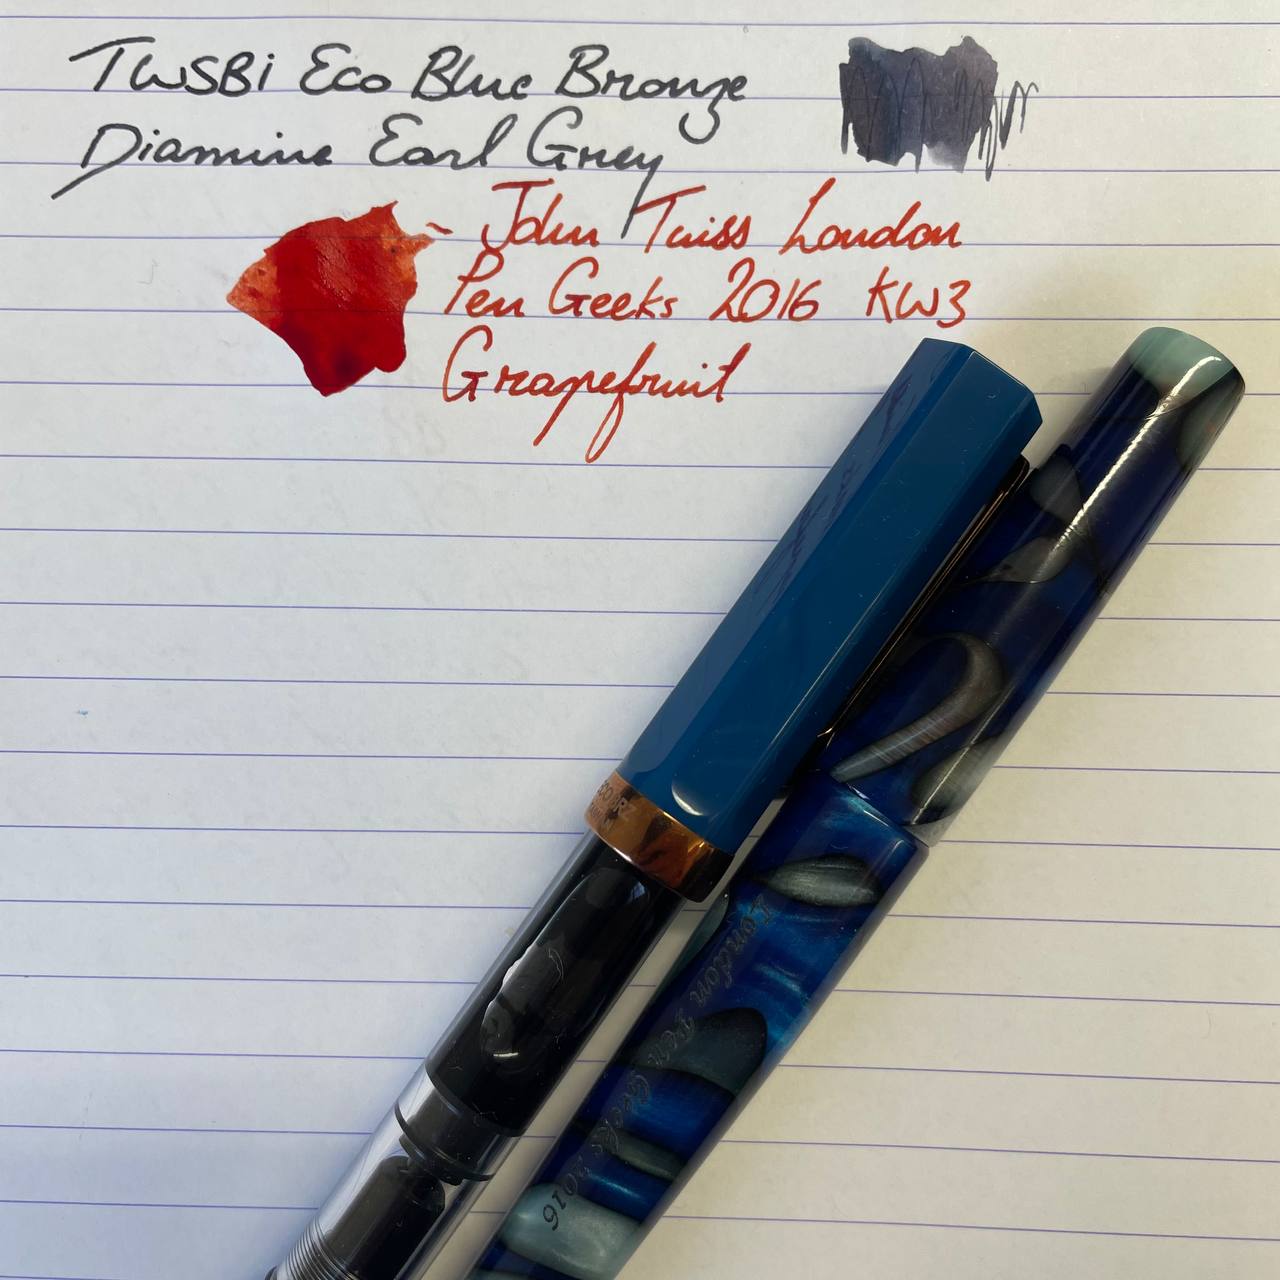 TWSBi Eco Blue Bronze
Diamine Earl Grey
John Twiss London
Pen Geeks 2016 KW3
Grapefruit
London Pen Geeks 2016